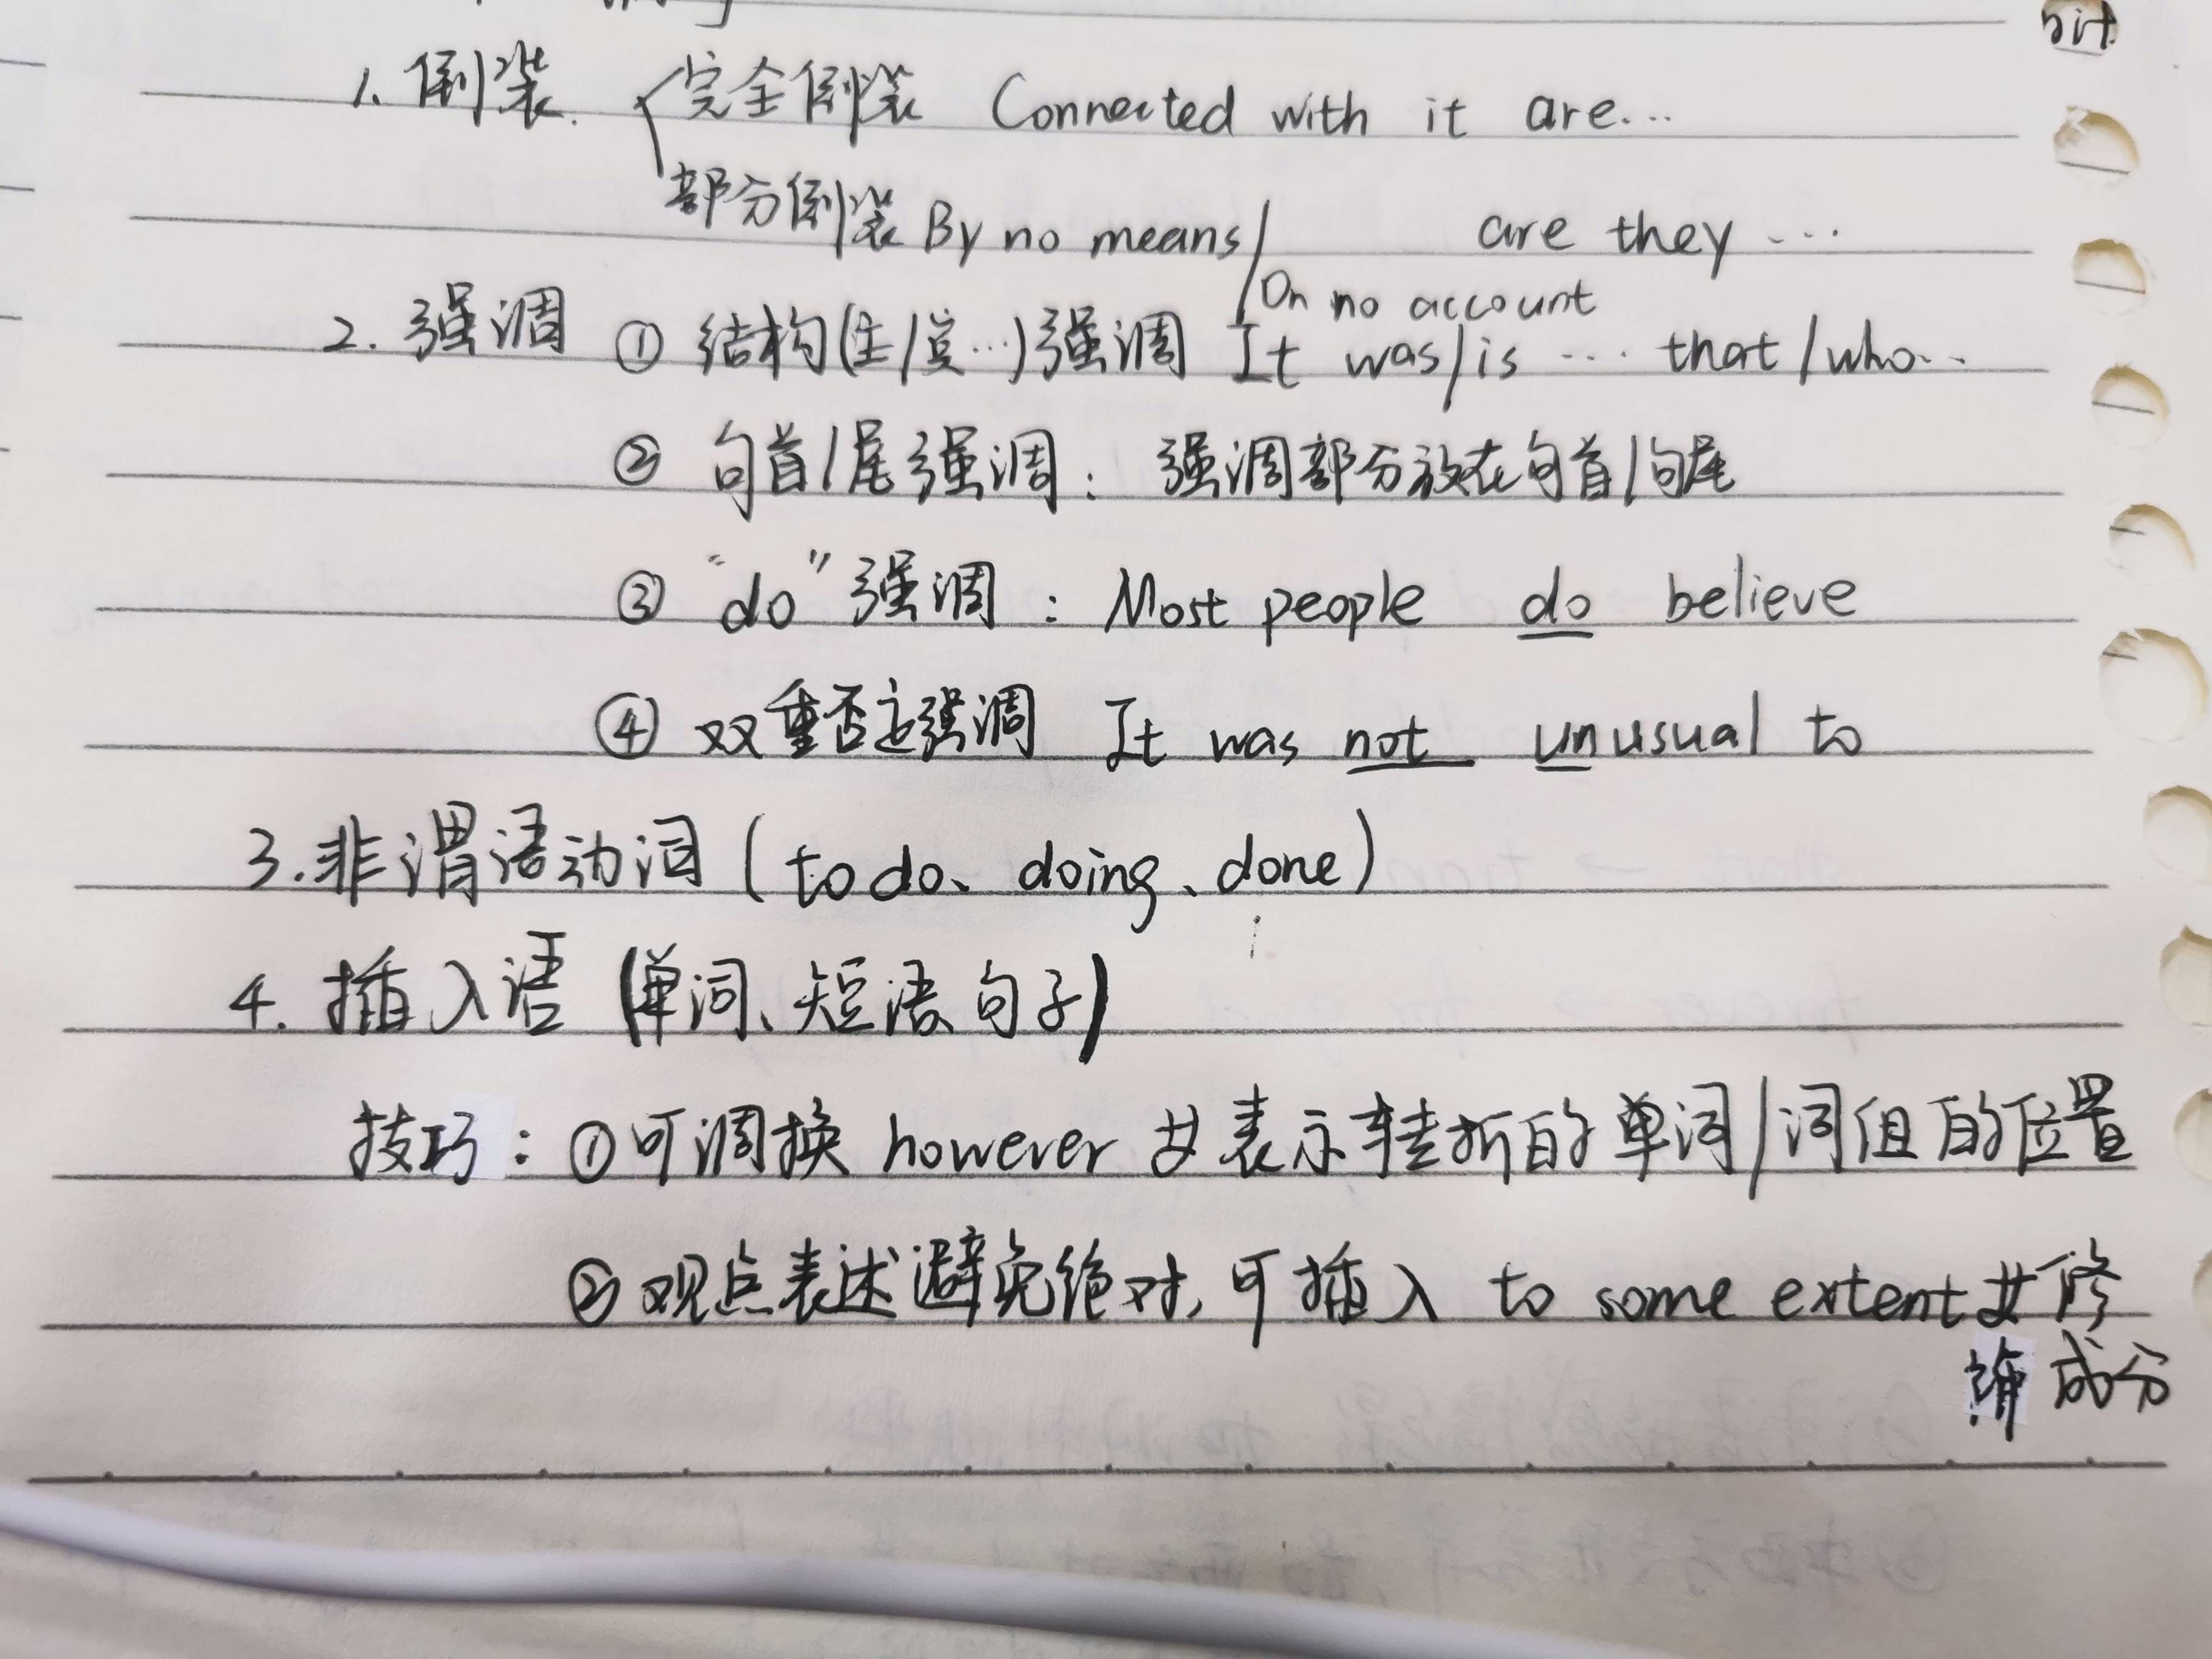 1. 倒装. 完全倒装 Connected with it are...
部分倒装 By no means/ are they ...
On no account
2. 强调 ① 结构(主/宾...)强调 It was/is ... that/who...
② 句首/尾强调: 强调部分放在句首/句尾
③ "do"强调: Most people do believe
④ 双重否定强调 It was not unusual to
3. 非谓语动词 (to do、doing、done)
4. 插入语 (单词、短语、句子)
技巧: ①可调换 however 类表示转折的单词/词组的位置
②观点表述避免绝对, 可插入 to some extent 类修
饰成分